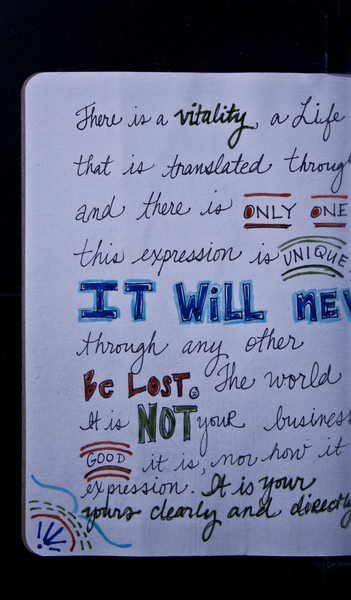 There is a vitality, a Life
that is translated through
and there is ONLY ONE
this expression is UNIQUE
IT WiLL NEV
through any other
Be LOST. The world
It is NOT your business
GOOD it is, nor how it
expression. It is your
yours clearly and directly